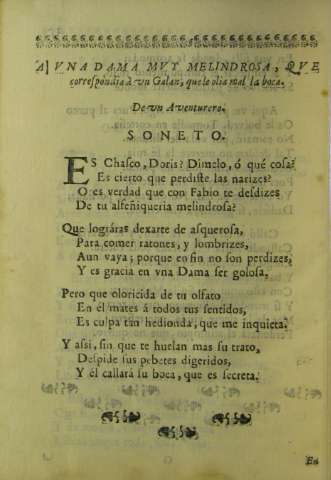 A VNA DAMA MUY MELINDROSA, QUE
correspondia à vn Galan, que le olia mal la boca.
De vn Aventurero.
SONETO.
ES Chasco, Doris? Dimelo, ó què cosa?
Es cierto que perdiste las narizes?
O es verdad que con Fabio te desdizes
De tu alfeñiqueria melindrosa?
Que lográras dexarte de asquerosa,
Para comer ratones, y lombrizes,
Aun vaya; porque en fin no son perdizes,
Y es gracia en vna Dama ser golosa,
Pero que oloricida de tu olfato
En él mates á todos tus sentidos,
Es culpa tan hedionda, que me inquieta.
Y assi, sin que te huelan mas su trato,
Despide sus pebetes digeridos,
Y él callará su boca, que es secreta.
En